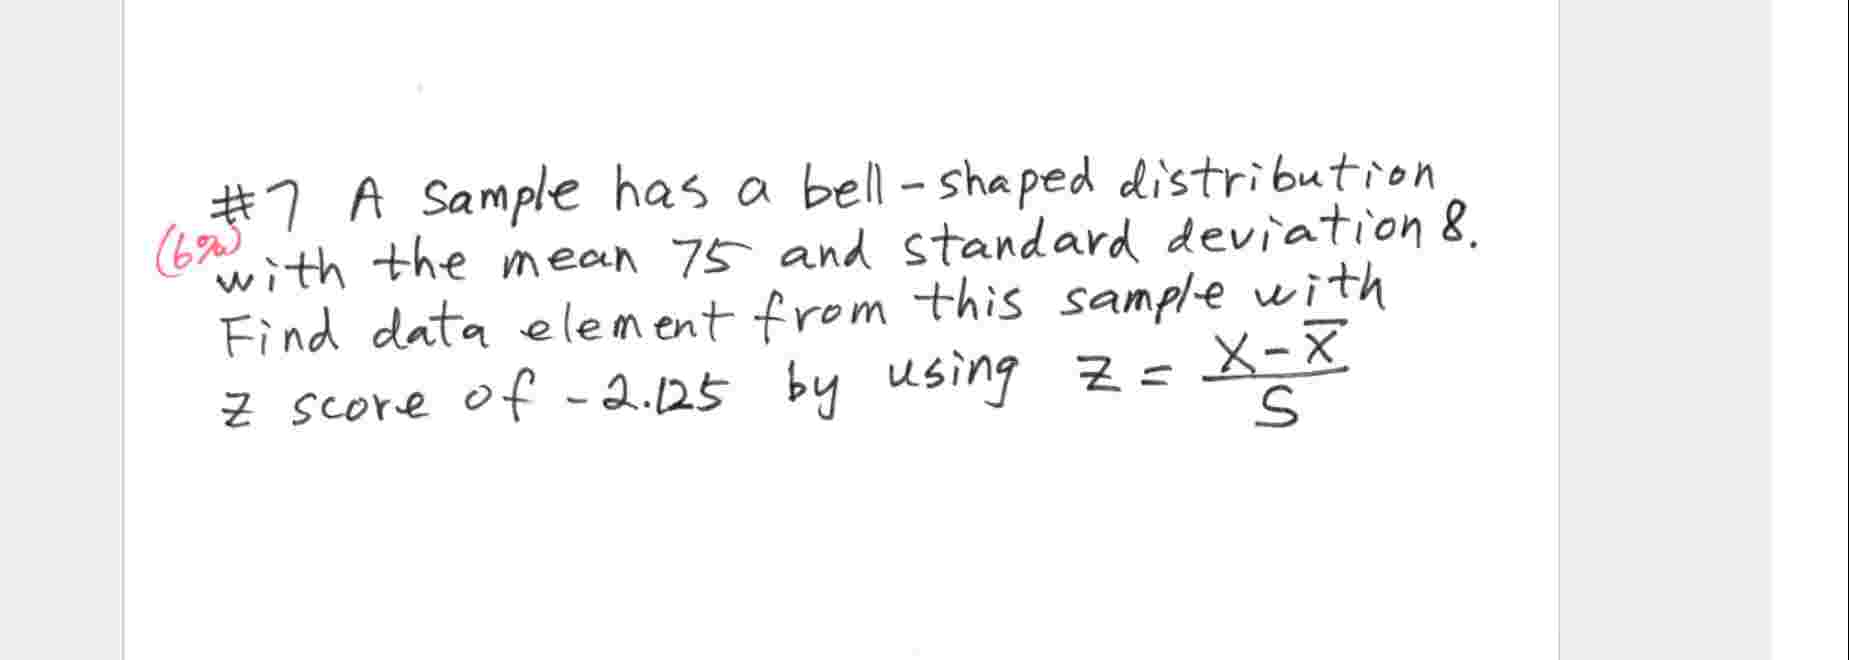 #7 A sample has a bell-shaped distribution
(6%) with the mean 75 and standard deviation 8.
Find data element from this sample with
z score of -2.125 by using z = (x - x̄)/s